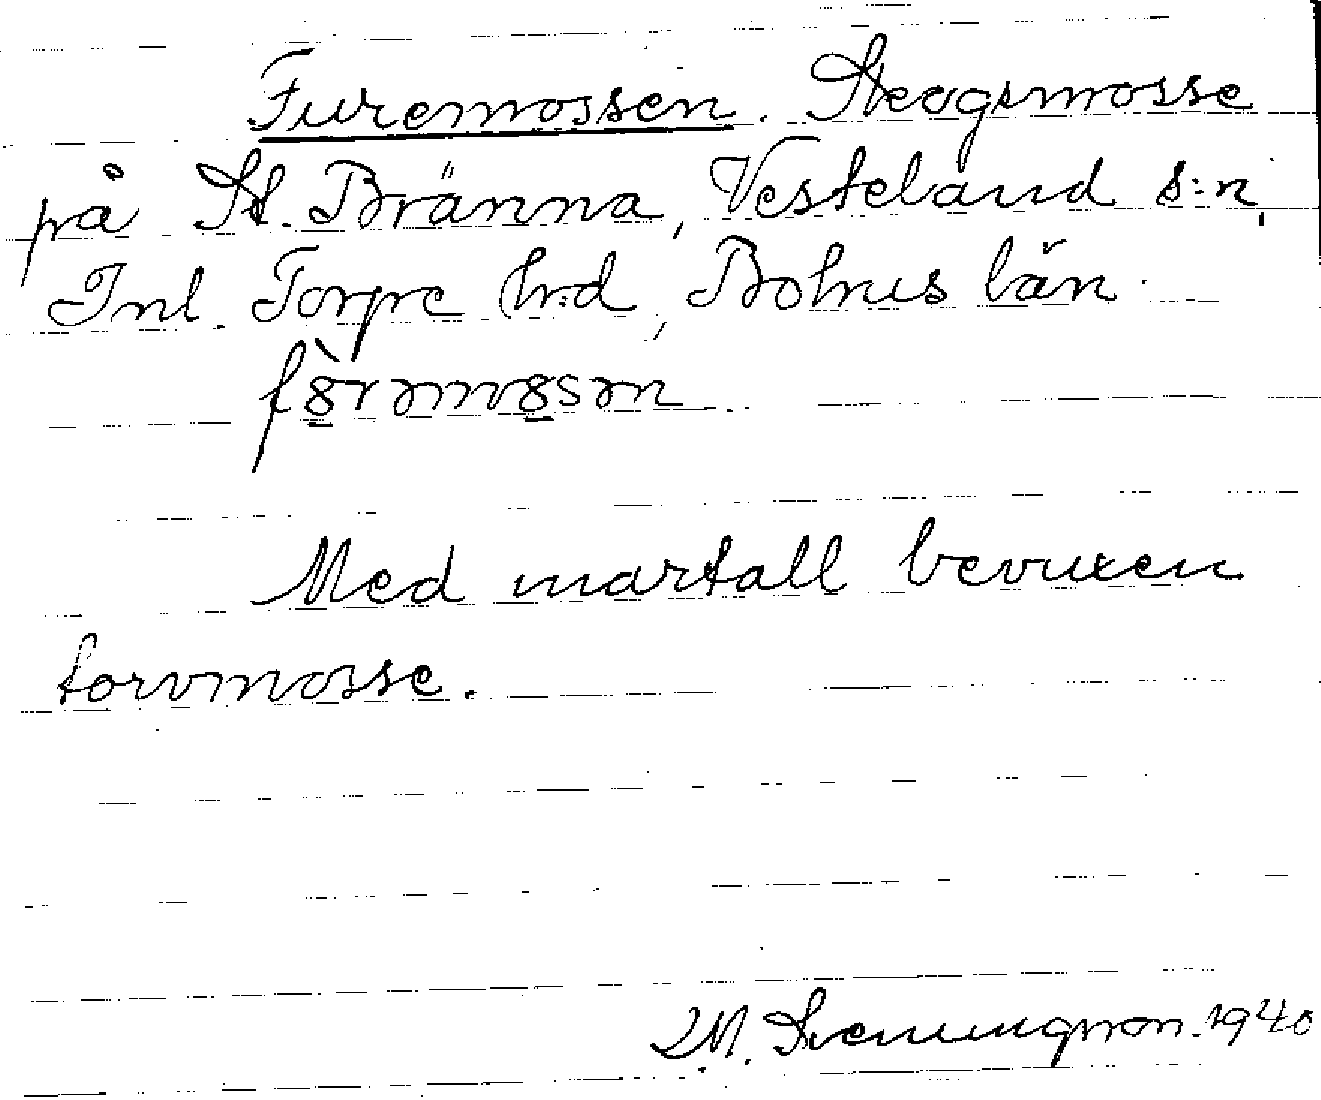 Furemossen. Skogsmosse
på St. Bränna, Vesteland s:n,
Inl. Torpe h:d, Bohus län.
Med martall bevuxen
torvmosse.
1940